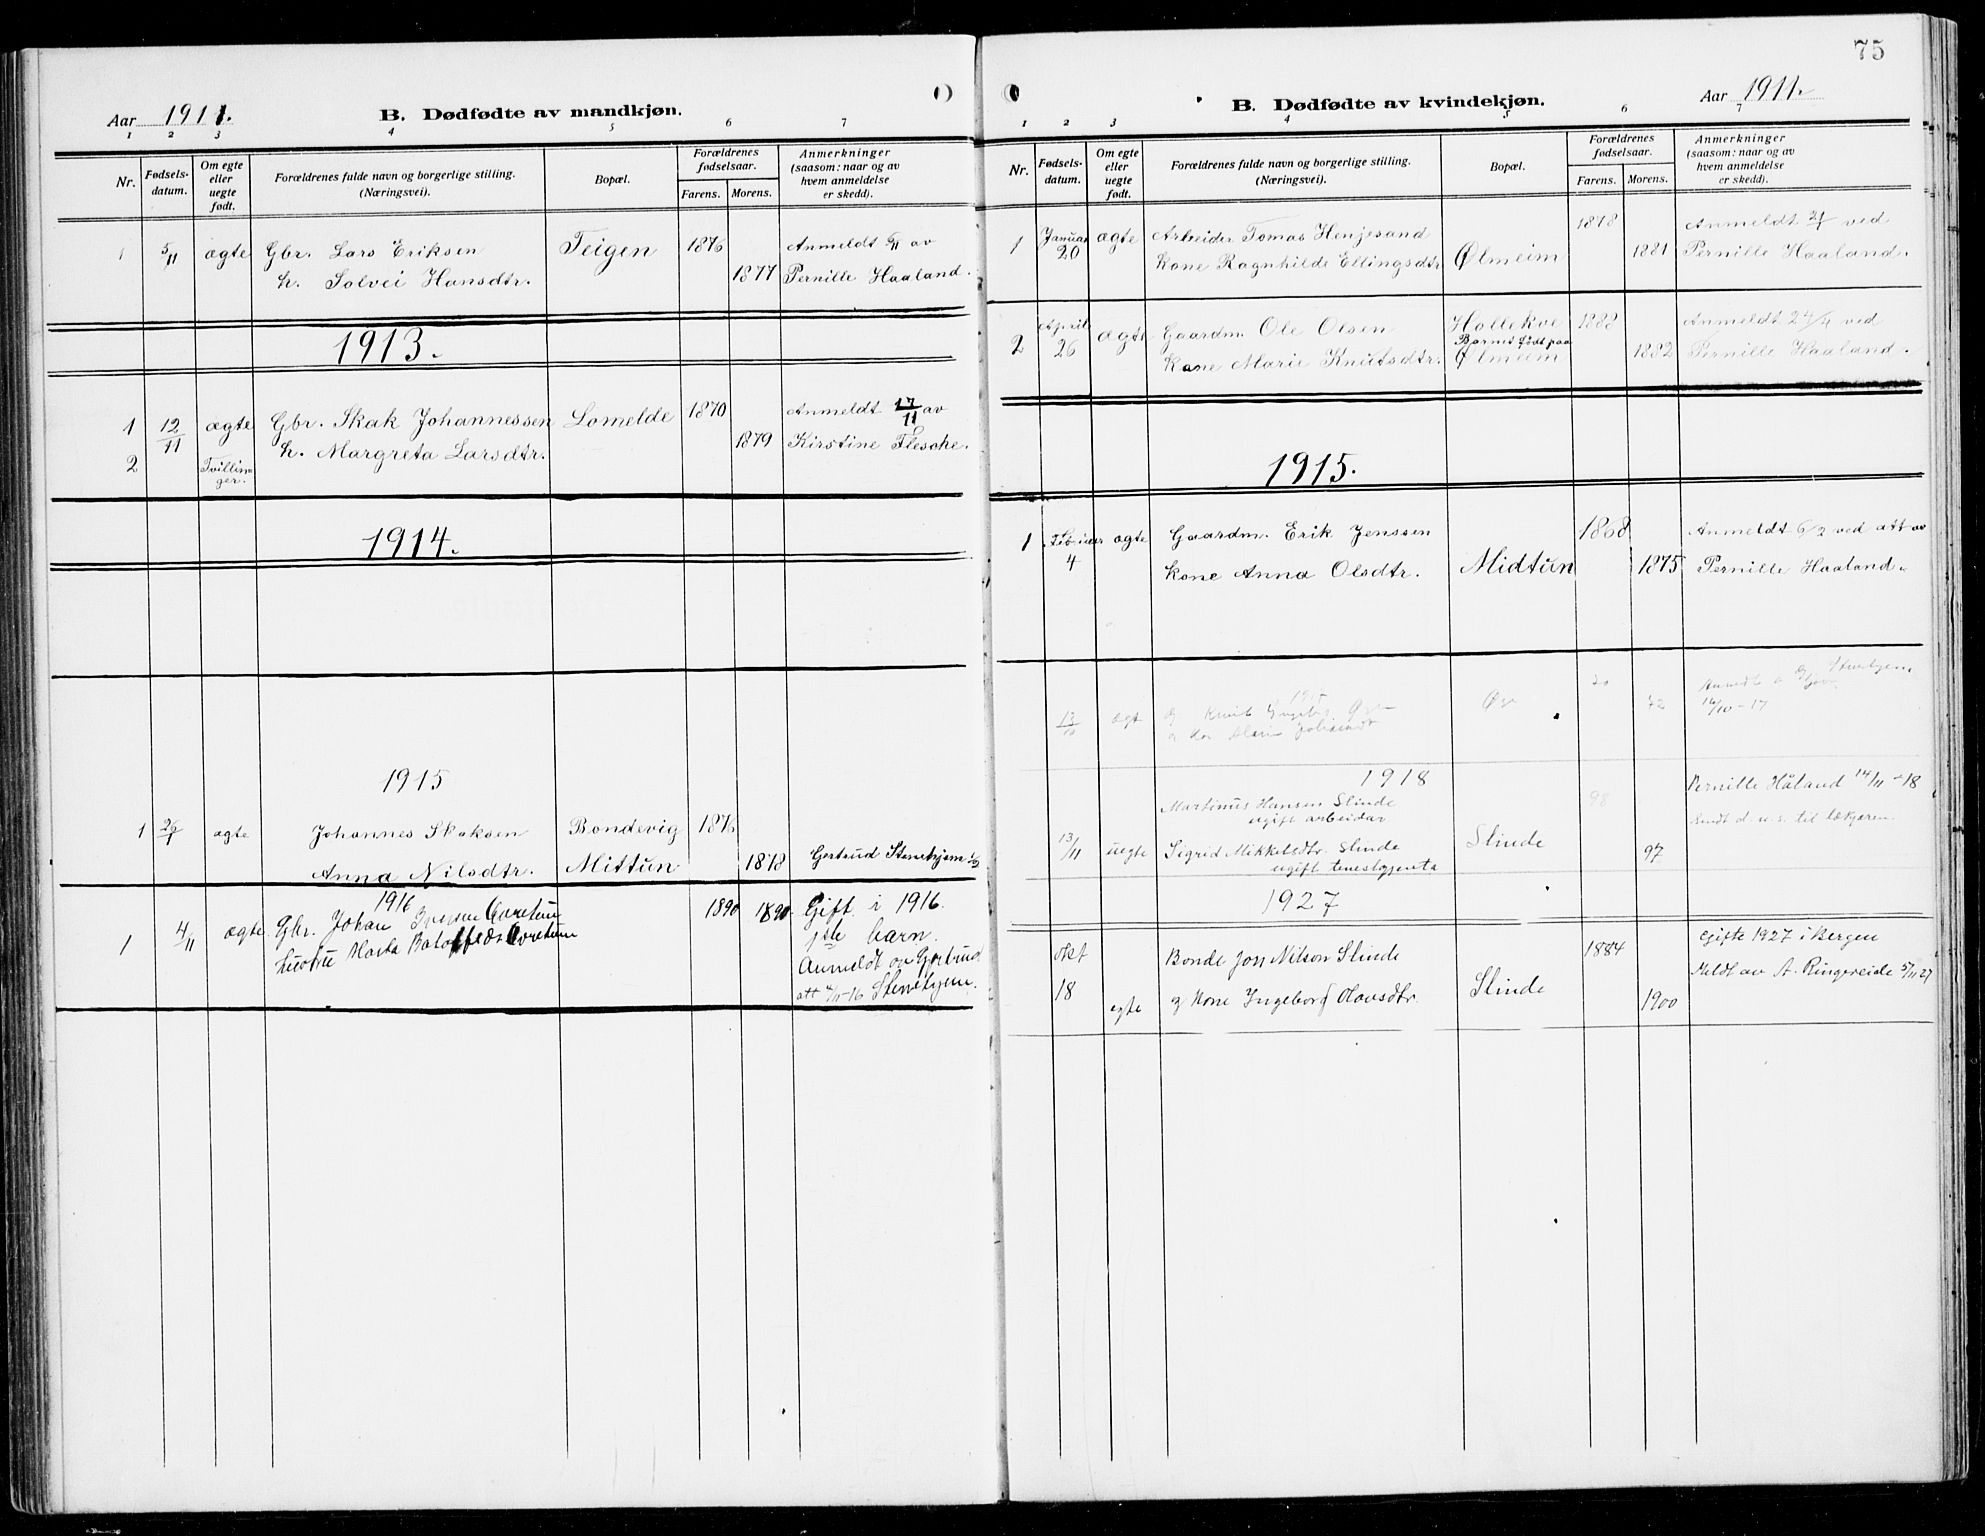 Aar 1911.
B. Dødfødte av mandkjøn.
1 2 3 4 5 6 7
Nr.
Fødsels-datum.
Om egte eller uegte født.
Forældrenes fulde navn og borgerlige stilling. (Næringsvei).
Bopæl.
Forældrenes fødselsaar.
Farens. Morens.
Anmerkninger (saasom: naar og av hvem anmeldelse er skedd).
1 5/11 ægte Gbr. Lars Eriksen Teigen 1876 Anmeldt 6/11 av
h. Solvei Hansdtr. 1877 Pernille Haaland.
1913.
1 12/11 ægte Gbr. Skak Johannessen Lomelde 1870 Anmeldt 17/11 av
2 Tvillinger. h. Margreta Larsdtr. 1879 Kirstine Flesche.
1914.
1915
1 26/1 ægte Johannes Skaksen Bondevig 1876
Anna Nilsdtr. Mittun 1878 Gertrud Stenehjem
1916
1 4/11 ægte Gbr. Johan 1890 1890 Gift i 1916.
hustru Marta 1ste barn.
Anmeldt av Gjertrud
att 7/11-16 Stenehjem.
75
B. Dødfødte av kvindekjøn.
Aar 1911.
1 2 3 4 5 6 7
Nr.
Fødsels-datum.
Om egte eller uegte født.
Forældrenes fulde navn og borgerlige stilling. (Næringsvei).
Bopæl.
Forældrenes fødselsaar.
Farens. Morens.
Anmerkninger (saasom: naar og av hvem anmeldelse er skedd).
1 Januar 20 ægte Arbeider Tomas Henjesand 1878 Anmeldt ved
Kone Ragnhilde Ellingsdtr Ølmeim 1881 Pernille Haaland.
2 April 26 ægte Gaardm Ole Olsen Hollekve 1888 Anmeldt 24/4 ved
Barnet født paa
Kone Marie Knutsdtr. Ølmeim 1882 Pernille Haaland.
1915.
1 Februar 4 ægte Gaardm. Erik Jenssen 1868 Anmeldt 6/2 ved att av
Kone Anna Olsdtr. Midtun 1875 Pernille Haaland.
13/10 ægt Knut
16/10-17
1918
Martinus Hansen Slinde 98 Pernille Håland 14/11-18
ugift arbeidar Sendt d. u. s. til lækjaren
13/11 uegte Sigrid Mikkelsdtr. Slinde Slinde 97
ugift tenestgjenta
1927
okt Bonde Jon Nilson Slinde 1884 Gifte 1927 i Bergen
Meldt av A. Ringereide 5/11 27
18 egte og Kone Ingeborg Olavsdtr. Slinde 1900